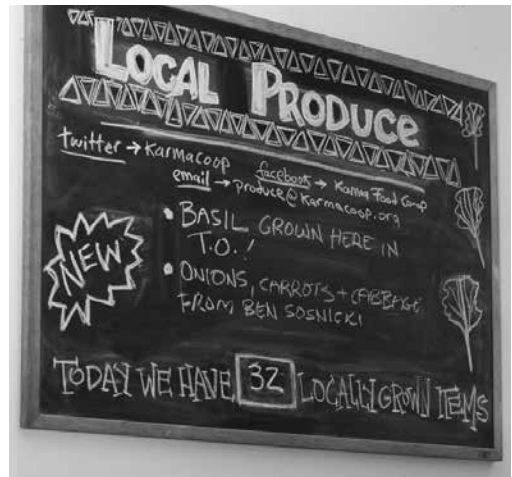 LOCAL PRODUCE
twitter → Karmacoop
facebook → Karma Food Co-op
email → produce@karmacoop.org
NEW
• BASIL GROWN HERE IN
T.O.!
• ONIONS, CARROTS + CABBAGE
FROM BEN SOSNICKI
TODAY WE HAVE 32 LOCALLY GROWN ITEMS